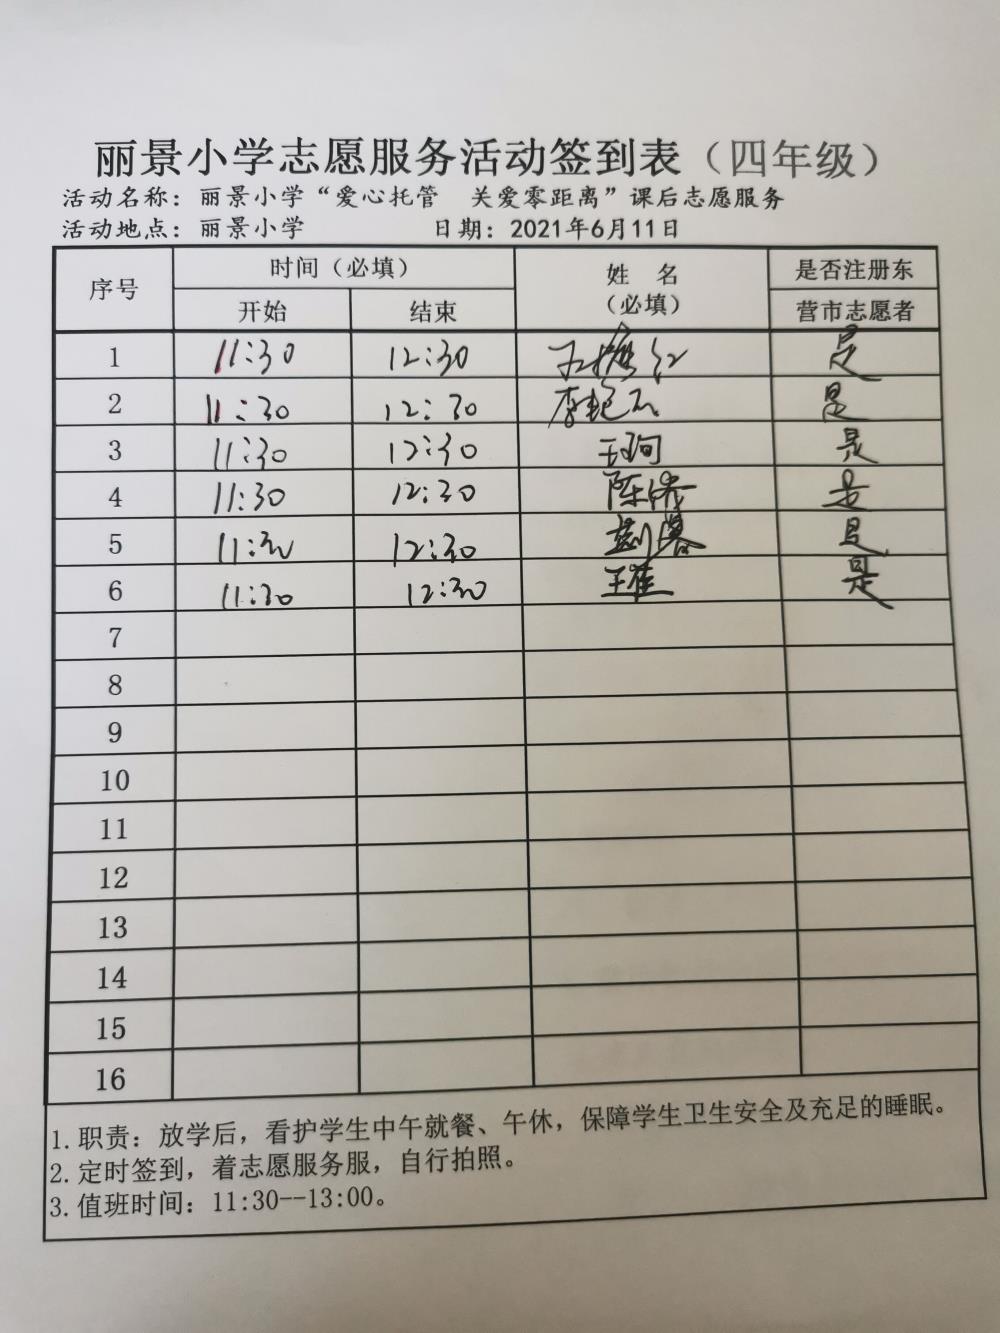 丽景小学志愿服务活动签到表（四年级）
活动名称：丽景小学“爱心托管 关爱零距离”课后志愿服务
活动地点：丽景小学 日期：2021年6月11日
序号 时间（必填） 姓 名（必填） 是否注册东营市志愿者
开始 结束
1 11:30 12:30 是
2 11:30 12:30 是
3 11:30 12:30 王珂 是
4 11:30 12:30 是
5 11:30 12:30 是
6 11:30 12:30 是
7
8
9
10
11
12
13
14
15
16
1.职责：放学后，看护学生中午就餐、午休，保障学生卫生安全及充足的睡眠。
2.定时签到，着志愿服务服，自行拍照。
3.值班时间：11:30--13:00。